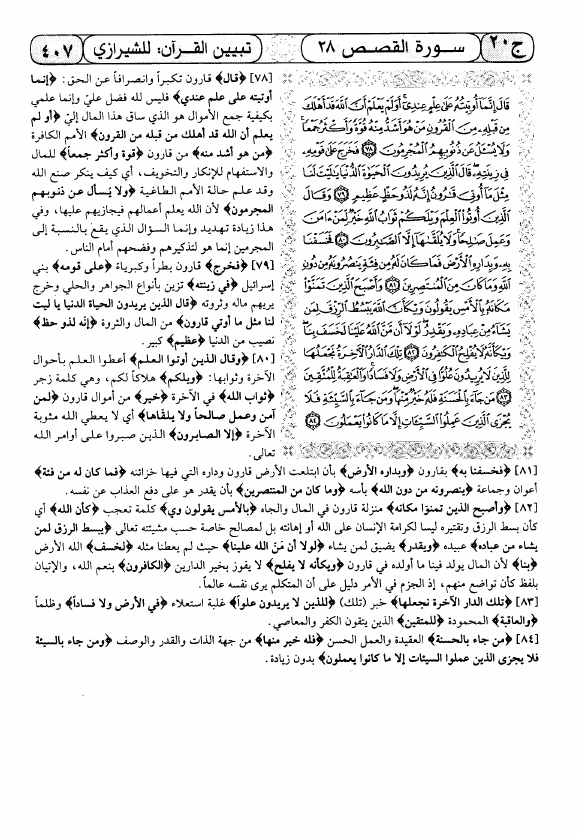 ج٢٠
سورة القصص ٢٨
تبيين القرآن: للشيرازي
٤٠٧
قَالَ إِنَّمَا أُوتِيتُهُ عَلَى عِلْمٍ عِندِي أَوَلَمْ يَعْلَمْ أَنَّ اللَّهَ قَدْ أَهْلَكَ
مِن قَبْلِهِ مِنَ الْقُرُونِ مَنْ هُوَ أَشَدُّ مِنْهُ قُوَّةً وَأَكْثَرُ جَمْعًا
وَلَا يُسْأَلُ عَن ذُنُوبِهِمُ الْمُجْرِمُونَ ٧٨ فَخَرَجَ عَلَى قَوْمِهِ
فِي زِينَتِهِ قَالَ الَّذِينَ يُرِيدُونَ الْحَيَاةَ الدُّنْيَا يَا لَيْتَ لَنَا
مِثْلَ مَا أُوتِيَ قَارُونُ إِنَّهُ لَذُو حَظٍّ عَظِيمٍ ٧٩ وَقَالَ
الَّذِينَ أُوتُوا الْعِلْمَ وَيْلَكُمْ ثَوَابُ اللَّهِ خَيْرٌ لِّمَنْ ءَامَنَ
وَعَمِلَ صَالِحًا وَلَا يُلَقَّاهَا إِلَّا الصَّابِرُونَ ٨٠ فَخَسَفْنَا
بِهِ وَبِدَارِهِ الْأَرْضَ فَمَا كَانَ لَهُ مِن فِئَةٍ يَنصُرُونَهُ مِن دُونِ
اللَّهِ وَمَا كَانَ مِنَ الْمُنتَصِرِينَ ٨١ وَأَصْبَحَ الَّذِينَ تَمَنَّوْا
مَكَانَهُ بِالْأَمْسِ يَقُولُونَ وَيْكَأَنَّ اللَّهَ يَبْسُطُ الرِّزْقَ لِمَن
يَشَاءُ مِنْ عِبَادِهِ وَيَقْدِرُ لَوْلَا أَن مَّنَّ اللَّهُ عَلَيْنَا لَخَسَفَ بِنَا
وَيْكَأَنَّهُ لَا يُفْلِحُ الْكَافِرُونَ ٨٢ تِلْكَ الدَّارُ الْآخِرَةُ نَجْعَلُهَا
لِلَّذِينَ لَا يُرِيدُونَ عُلُوًّا فِي الْأَرْضِ وَلَا فَسَادًا وَالْعَاقِبَةُ لِلْمُتَّقِينَ
٨٣ مَن جَاءَ بِالْحَسَنَةِ فَلَهُ خَيْرٌ مِّنْهَا وَمَن جَاءَ بِالسَّيِّئَةِ فَلَا
يُجْزَى الَّذِينَ عَمِلُوا السَّيِّئَاتِ إِلَّا مَا كَانُوا يَعْمَلُونَ ٨٤
[٧٨] ﴿قال﴾ قارون تكبراً وانصرافاً عن الحق: ﴿إنما
أوتيته على علم عندي﴾ فليس لله فضل عليّ وإنما علمي
بكيفية جمع الأموال هو الذي ساق هذا المال إليّ ﴿أو لم
يعلم أن الله قد أهلك من قبله من القرون﴾ الأمم الكافرة
﴿من هو أشد منه﴾ من قارون ﴿قوة وأكثر جمعاً﴾ للمال
والاستفهام للإنكار والتخويف، أي كيف ينكر صنع الله
وقد علم حالة الأمم الطاغية ﴿ولا يُسأل عن ذنوبهم
المجرمون﴾ لأن الله يعلم أعمالهم فيجازيهم عليها، وفي
هذا زيادة تهديد وإنما السؤال الذي يقع بالنسبة إلى
المجرمين إنما هو لتذكيرهم وفضحهم أمام الناس.
[٧٩] ﴿فخرج﴾ قارون بطراً وكبرياءً ﴿على قومه﴾ بني
إسرائيل ﴿في زينته﴾ تزين بأنواع الجواهر والحلي وخرج
يريهم ماله وثروته ﴿قال الذين يريدون الحياة الدنيا يا ليت
لنا مثل ما أوتي قارون﴾ من المال والثروة ﴿إنّه لذو حظ﴾
نصيب من الدنيا ﴿عظيم﴾ كبير.
[٨٠] ﴿وقال الذين أوتوا العلم﴾ أعطوا العلم بأحوال
الآخرة وثوابها: ﴿ويلكم﴾ هلاكاً لكم، وهي كلمة زجر
﴿ثواب الله﴾ في الآخرة ﴿خير﴾ من أموال قارون ﴿لمن
آمن وعمل صالحاً ولا يلقّاها﴾ أي لا يعطي الله مثوبة
الآخرة ﴿إلا الصابرون﴾ الذين صبروا على أوامر الله
تعالى.
[٨١] ﴿فخسفنا به﴾ بقارون ﴿وبداره الأرض﴾ بأن ابتلعت الأرض قارون وداره التي فيها خزائنه ﴿فما كان له من فئة﴾
أعوان وجماعة ﴿ينصرونه من دون الله﴾ بأسه ﴿وما كان من المنتصرين﴾ بأن يقدر هو على دفع العذاب عن نفسه.
[٨٢] ﴿وأصبح الذين تمنوا مكانه﴾ منزلة قارون في المال والجاه ﴿بالأمس يقولون وي﴾ كلمة تعجب ﴿كأن الله﴾ أي
كأن بسط الرزق وتقتيره ليسا لكرامة الإنسان على الله أو إهانته بل لمصالح خاصة حسب مشيئته تعالى ﴿يبسط الرزق لمن
يشاء من عباده﴾ عبيده ﴿ويقدر﴾ يضيق لمن يشاء ﴿لولا أن مَنّ الله علينا﴾ حيث لم يعطنا مثله ﴿لخسف﴾ الله الأرض
﴿بنا﴾ لأن المال يولد فينا ما أولده في قارون ﴿ويكأنه لا يفلح﴾ لا يفوز بخير الدارين ﴿الكافرون﴾ بنعم الله، والإتيان
بلفظ كأن تواضع منهم، إذ الجزم في الأمر دليل على أن المتكلم يرى نفسه عالماً.
[٨٣] ﴿تلك الدار الآخرة نجعلها﴾ خبر (تلك) ﴿للذين لا يريدون علواً﴾ غلبة استعلاء ﴿في الأرض ولا فساداً﴾ وظلماً
﴿والعاقبة﴾ المحمودة ﴿للمتقين﴾ الذين يتقون الكفر والمعاصي.
[٨٤] ﴿من جاء بالحسنة﴾ العقيدة والعمل الحسن ﴿فله خير منها﴾ من جهة الذات والقدر والوصف ﴿ومن جاء بالسيئة
فلا يجزى الذين عملوا السيئات إلا ما كانوا يعملون﴾ بدون زيادة.